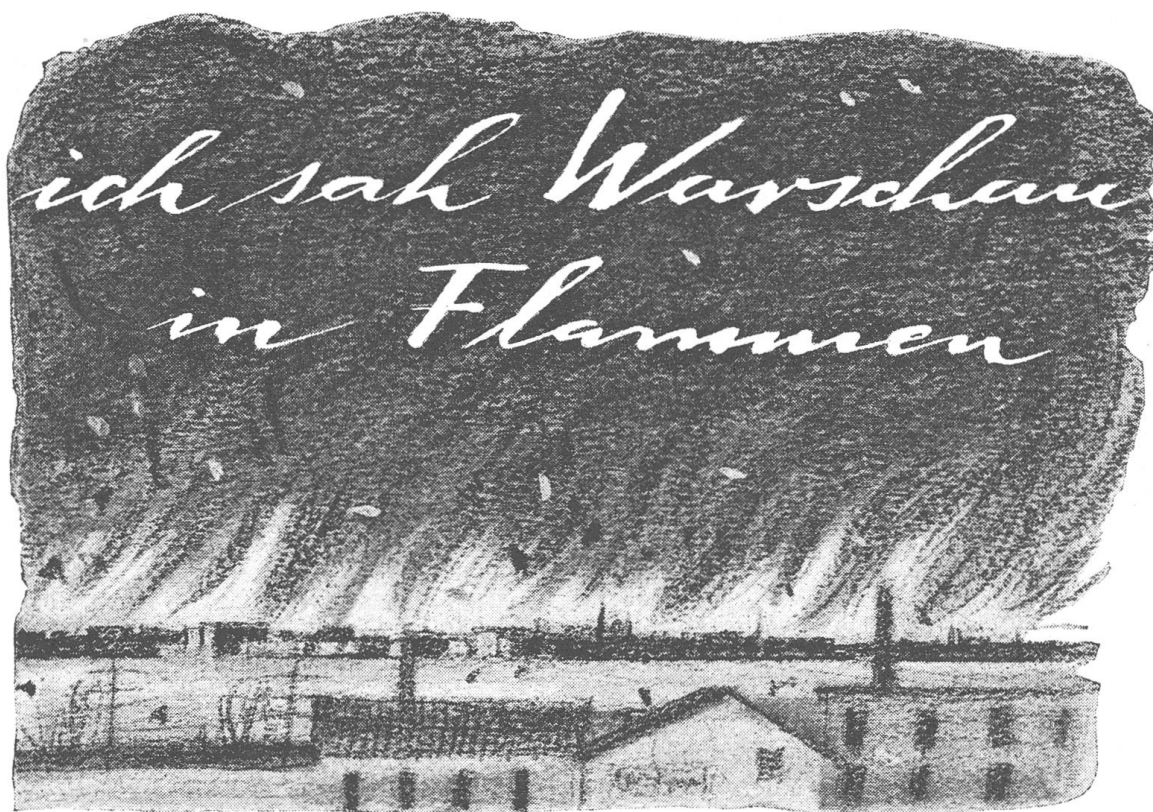 ich sah Warschau
in Flammen